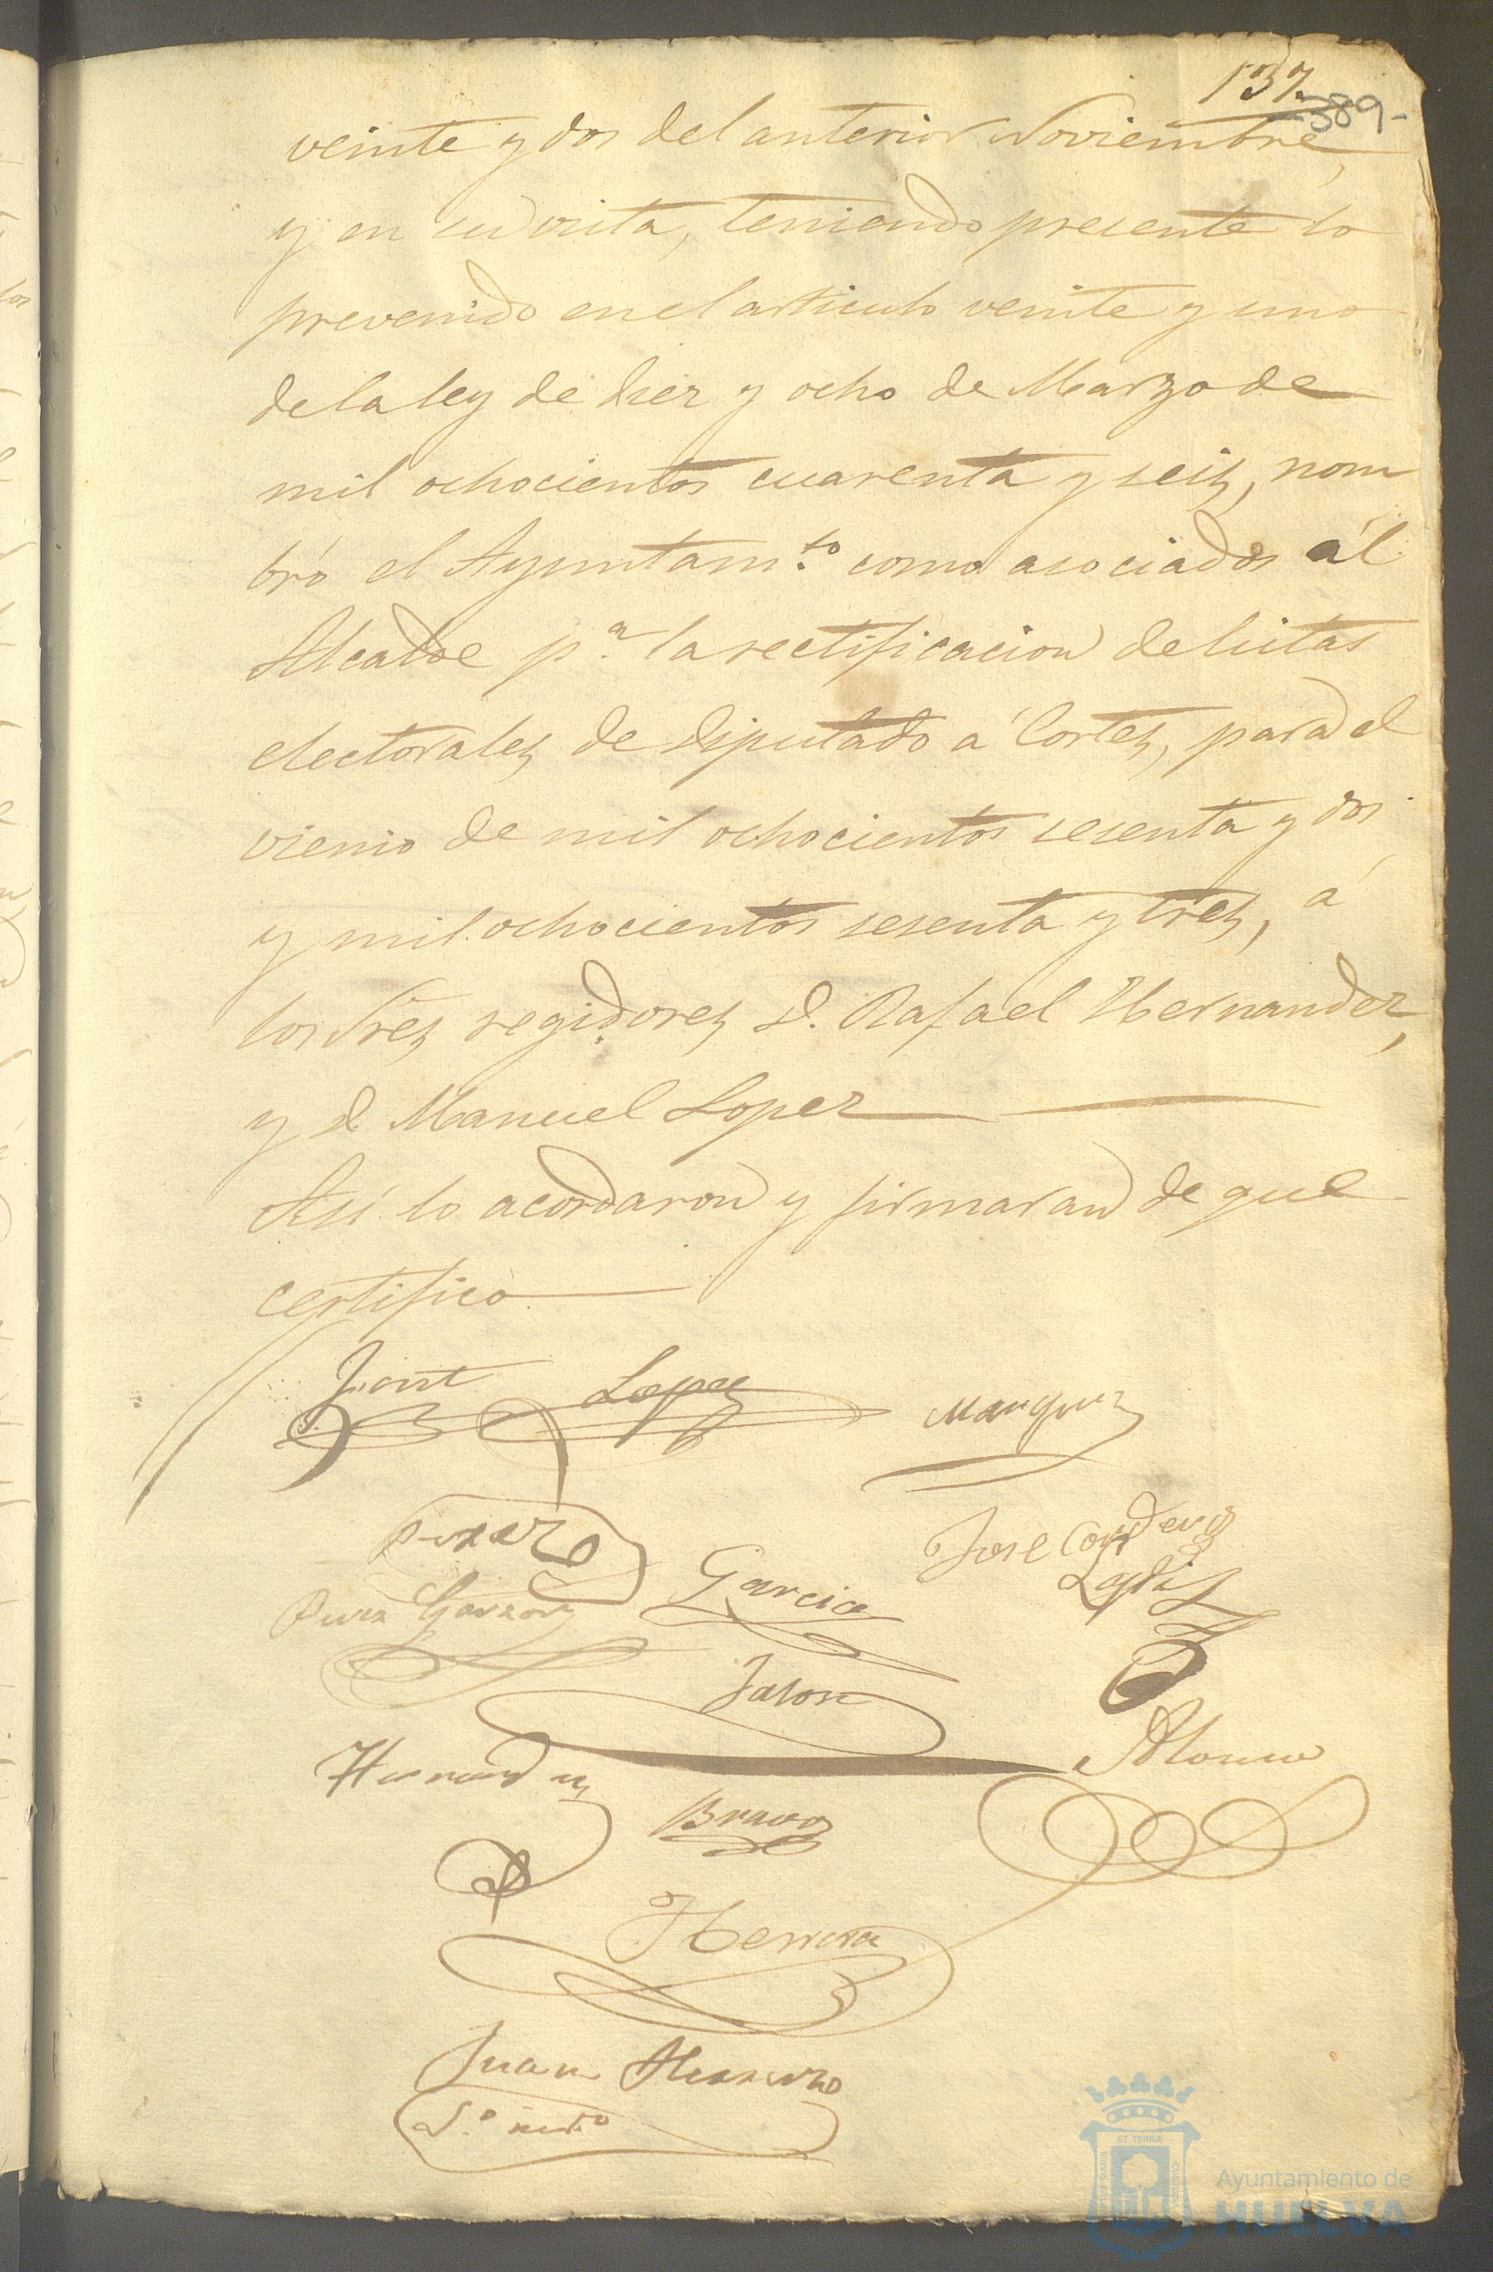 137.
-389-
veinte y dos del anterior Noviembre,
y en su vista, teniendo presente lo
prevenido en el articulo veinte y uno
de la ley de diez y ocho de Marzo de
mil ochocientos cuarenta y seis, nom
bró el Ayuntam.to como asociados ál
Alcalde p.a la rectificacion de listas
electorales de Diputado á Cortes, para el
vienio de mil ochocientos sesenta y dos
y mil ochocientos sesenta y tres, á
los Sres regidores D. Rafael Hernandez,
y D. Manuel Lopez
Así lo acordaron y firmaran de que
certifico
Lopez
Marquez
Jose Cordero
Garcia
Ruiz Garzon
Jalon
Hernandez
Alonso
Bravo
Herrera
Juan
S.o
ET TERRÆ
Ayuntamiento de
HUELVA